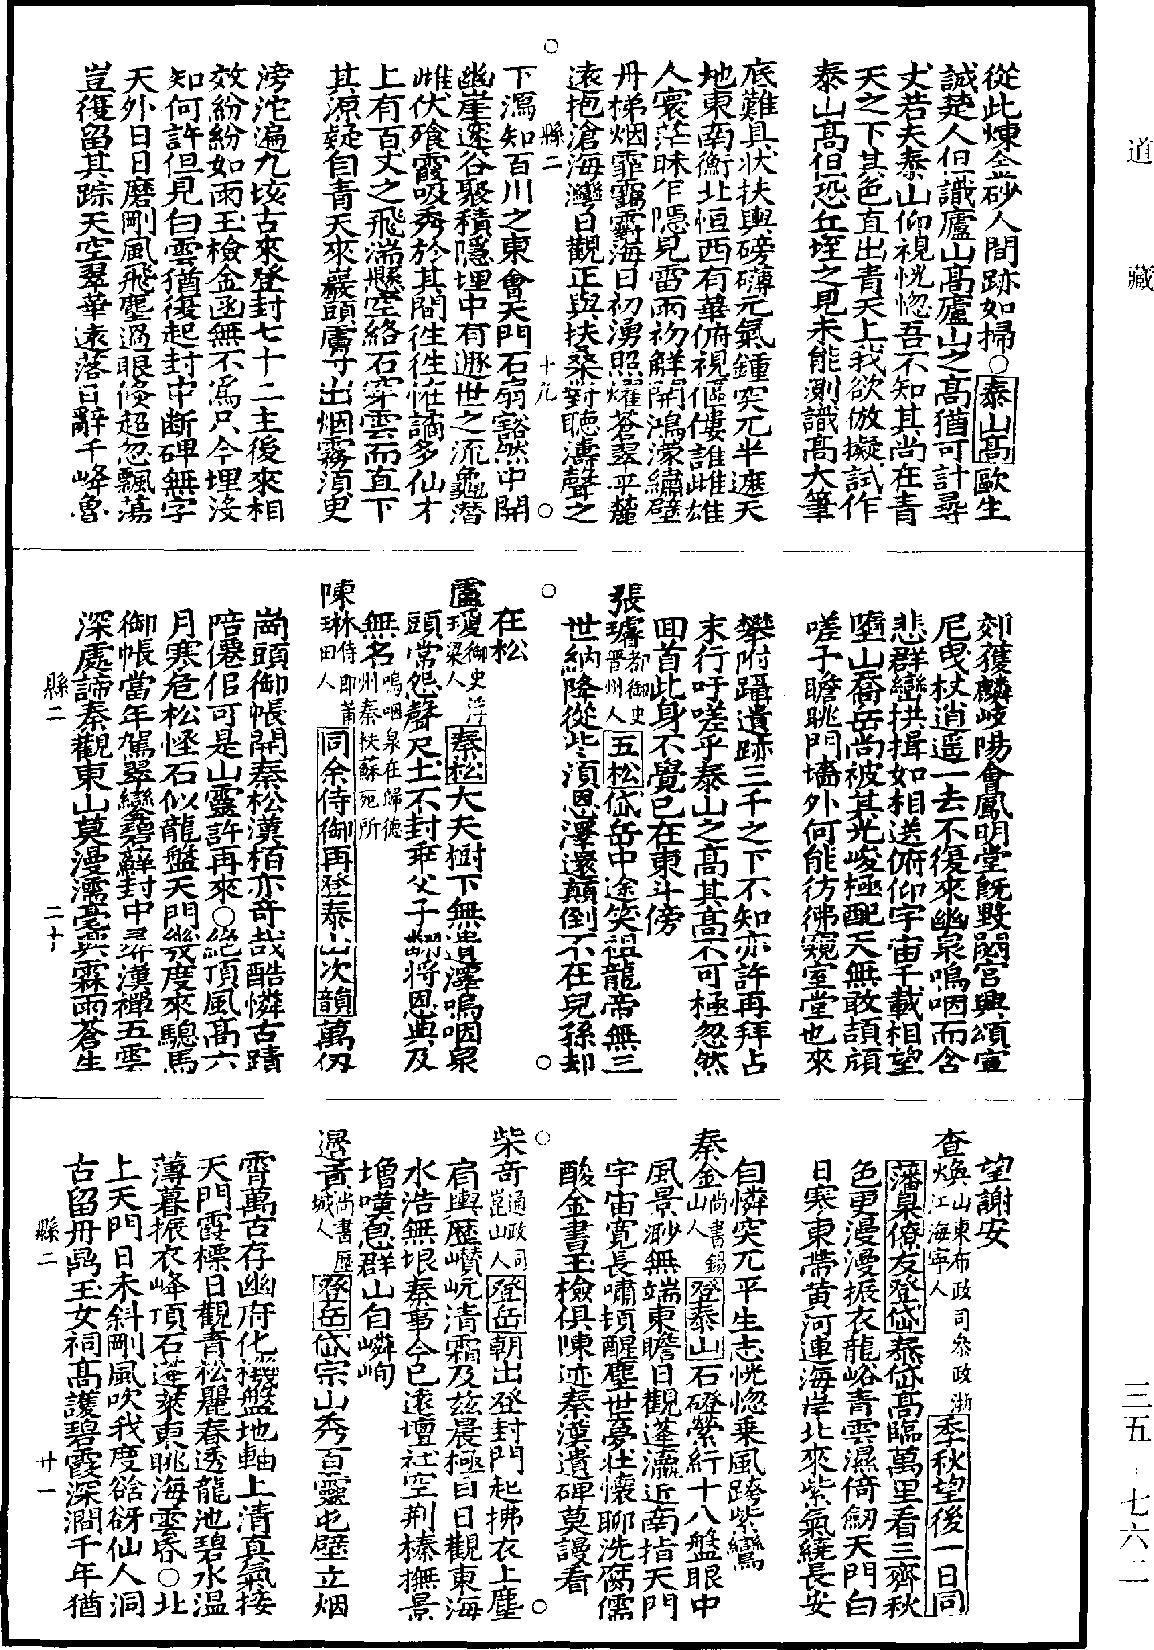 道藏
從此煉金砂人間跡如掃○泰山高歐生
誠楚人但識廬山高廬山之高猶可計尋
丈若夫泰山仰視恍惚吾不知其尚在青
天之下其色直出青天上我欲倣擬試作
泰山高但恐丘垤之見未能測識高大筆
底難具狀扶輿磅礴元氣鍾突兀半遮天
地東南衡北恒西有華俯視傴僂誰雌雄
人寰茫昧乍隱見雷雨初解開鴻濛繡壁
丹梯烟霏靄䨴海日初湧照耀蒼翠平麓
遠抱滄海灣日觀正與扶桑對聽濤聲之
下瀉知百川之東會天門石扇豁然中開
幽崖邃谷聚積隱埋中有遯世之流龜潛
雌伏飱霞吸秀於其間徃徃恠譎多仙才
上有百丈之飛湍懸空絡石穿雲而直下
其源疑自青天來巖頭膚寸出烟霧須臾
滂沱遍九垓古來登封七十二主後來相
效紛紛如雨玉檢金函無不爲只今埋沒
知何許但見白雲猶復起封中断碑無字
天外日日磨剛風飛塵過眼倐超忽飄蕩
豈復留其踪天空翠華遠落日辭千峰魯
縣二　十九
郊獲麟岐陽會鳳明堂旣毀閟宮興頌宣
尼曳杖逍遥一去不復來幽泉嗚咽而含
悲群巒拱揖如相送俯仰宇宙千載相望
墮山喬岳尚被其光峻極配天無敢頡頏
嗟子瞻眺門墻外何能彷彿窺室堂也來
攀附躡遺跡三千之下不知亦許再拜占
末行吁嗟乎泰山之高其高不可極忽然
囬首此身不覺已在東斗傍
張璿都御史晉州人五松岱岳中途笑祖龍帝無三
世納降從此須恩澤還顛倒不在兒孫却
在松
盧瓊御史浮梁人秦松大夫樹下無遺澤嗚咽泉
頭常怨聲尺土不封乖父子翻將恩典及
無名嗚咽泉在歸德州秦扶蘇死所
陳琳侍郎莆田人同余侍御再登泰山次韻萬仭
崗頭御帳開秦松漢栢亦奇哉酷憐古蹟
陪僊侶可是山靈許再來○絶頂風高六
月寒危松怪石似龍盤天門幾度來驄馬
御帳當年駕翠鑾碧蘚封中尋漢禪五雲
深處諦秦觀東山莫漫濡毫興霖雨蒼生
縣二　二十
望謝安
查煥山東布政司叅政浙江海寧人季秋望後一日同
藩臬僚友登岱泰岱高臨萬里看三齊秋
色更漫漫振衣龍峪青雲濕倚劒天門白
日寒東帶黄河連海岸北來紫氣繞長安
自憐突兀平生志恍惚乗風跨紫鸞
秦金尚書錫山人登泰山石磴縈紆十八盤眼中
風景渺無端東瞻日觀蓬瀛近南指天門
宇宙寛長嘯頓醒塵世夢壮懷聊洗腐儒
酸金書玉檢俱陳迹秦漢遺碑莫謾看
柴奇通政司崑山人登岳朝出登封門起拂衣上塵
肩輿歴巑岏清霜及茲晨極目日觀東海
水浩無垠秦事今已遠壇社空荆榛撫景
增嘆息群山自嶙峋
邊貢尚書歷城人登岳岱宗山秀百靈屯壁立烟
霄萬古存幽府化機盤地軸上清真氣接
天門霞標日觀青松麗春透龍池碧水温
薄暮振衣峰頂石蓬萊東眺海雲昬○北
上天門日未斜剛風吹我度谽谺仙人洞
古留丹鼎玉女祠高護碧霞深澗千年猶
縣二　廿一
三五-七六二